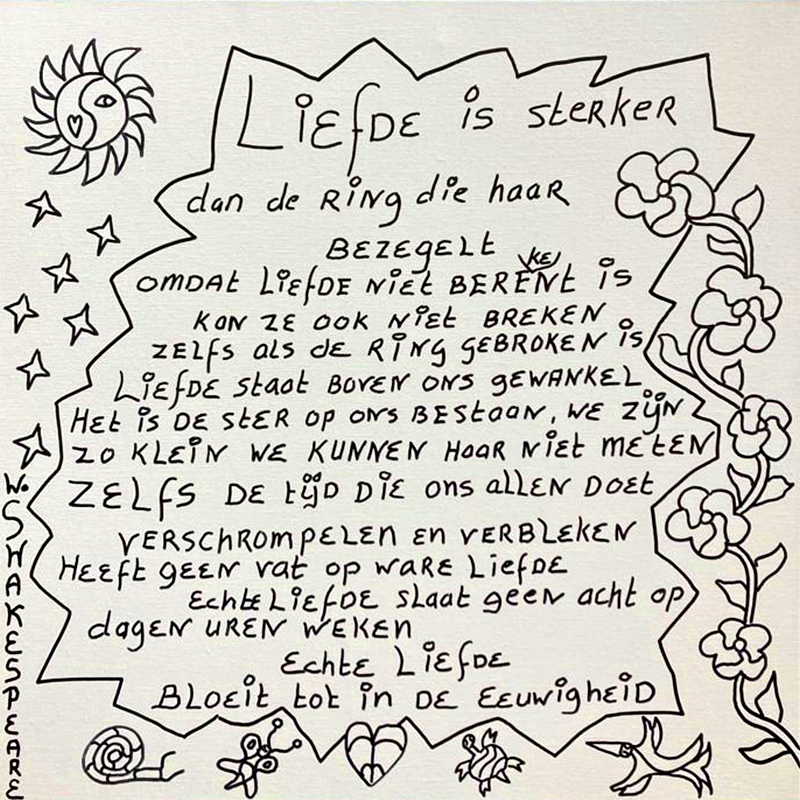 LiEfDE is sterker
dan de RiNg die haaR
BEZEGELt
OMDAt LiEfDE NiEt BEREkENt is
KAN ZE OOK NiEt BREKEN
ZELfs als de RiNg gEBROKEN is
LiEfDE staat BOVEN ONS gEWANKEL
HEt is DE stER OP ONS BEStaaN, WE ZijN
ZO KLEiN WE KUNNEN HaaR NiEt MEtEN
ZELFS DE tijD DiE ons allEN DoEt
VERSCHROMPELEN EN VERBLEKEN
HEEft gEEN vat op waRE LiEfDE
EchtE LiEfDE slaat gEEN acht op
dagEN UREN WEKEN
EchtE LiEfDE
BLOEit tot iN DE EEuwigHEiD
W. SHAKESPEARE